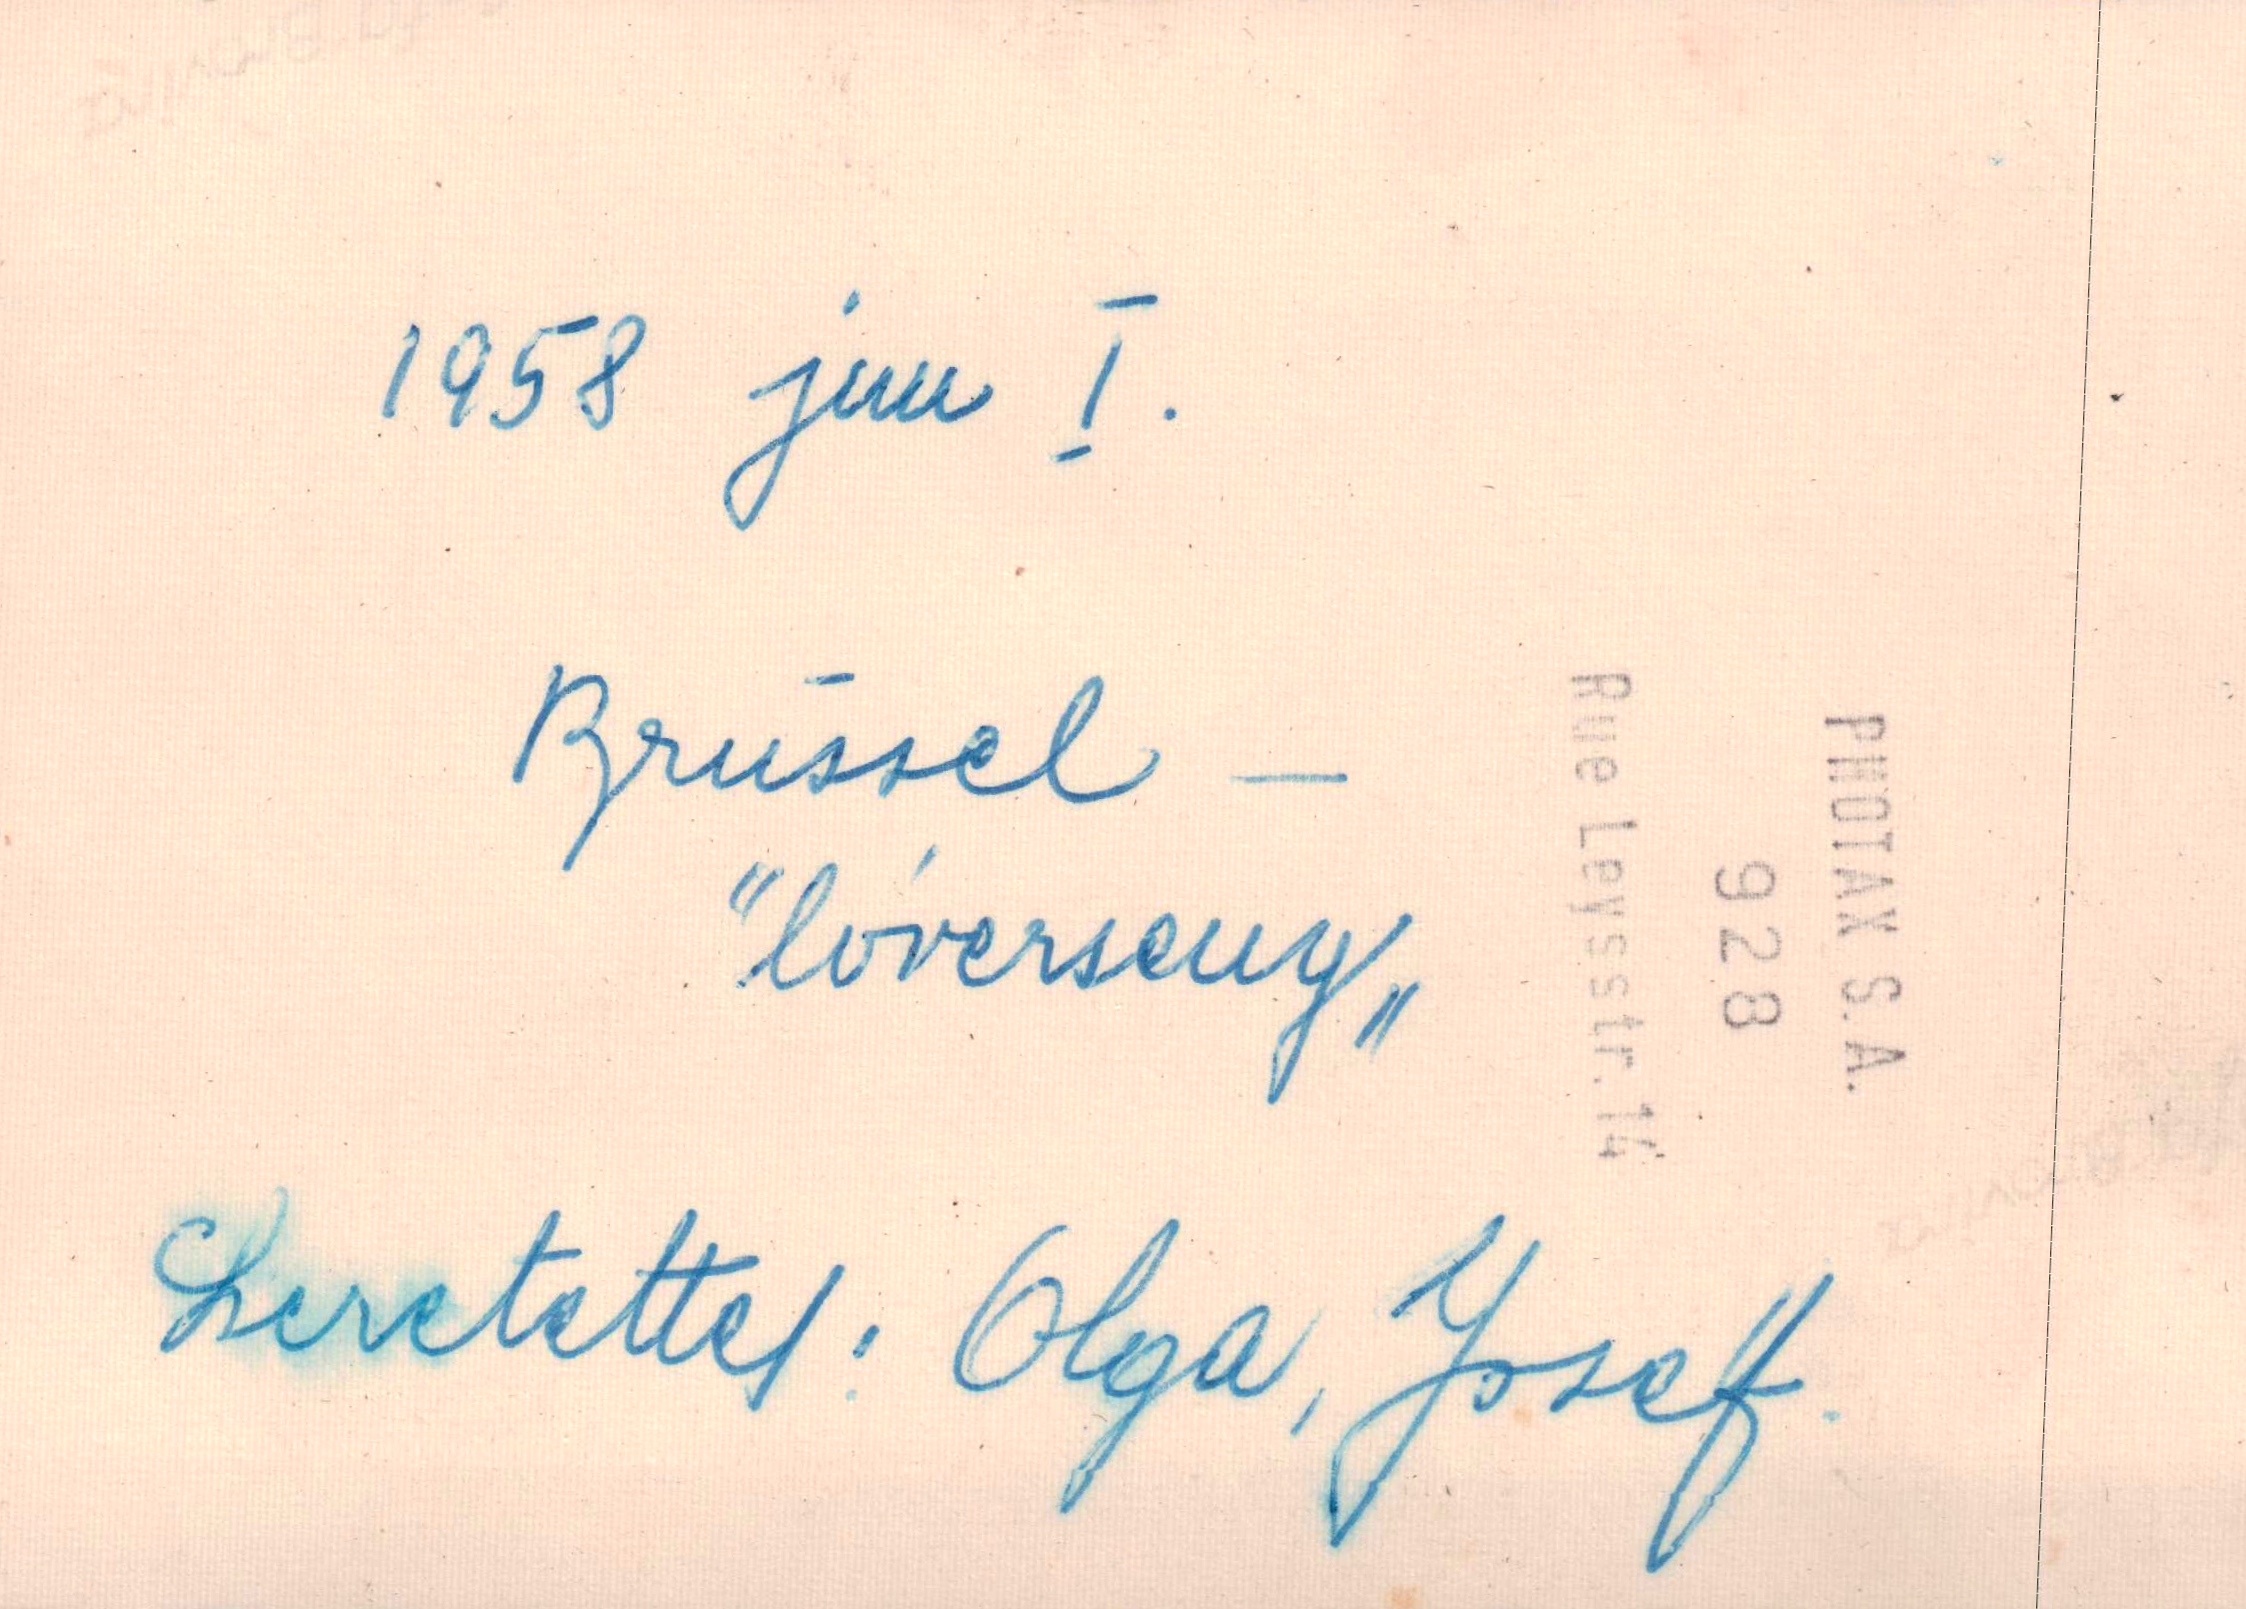 1958 jun I.
Brüssel —
"lóverseny„
Szeretettel: Olga, Josef.
PHOTAX S.A.
928
Rue Leysstr. 14